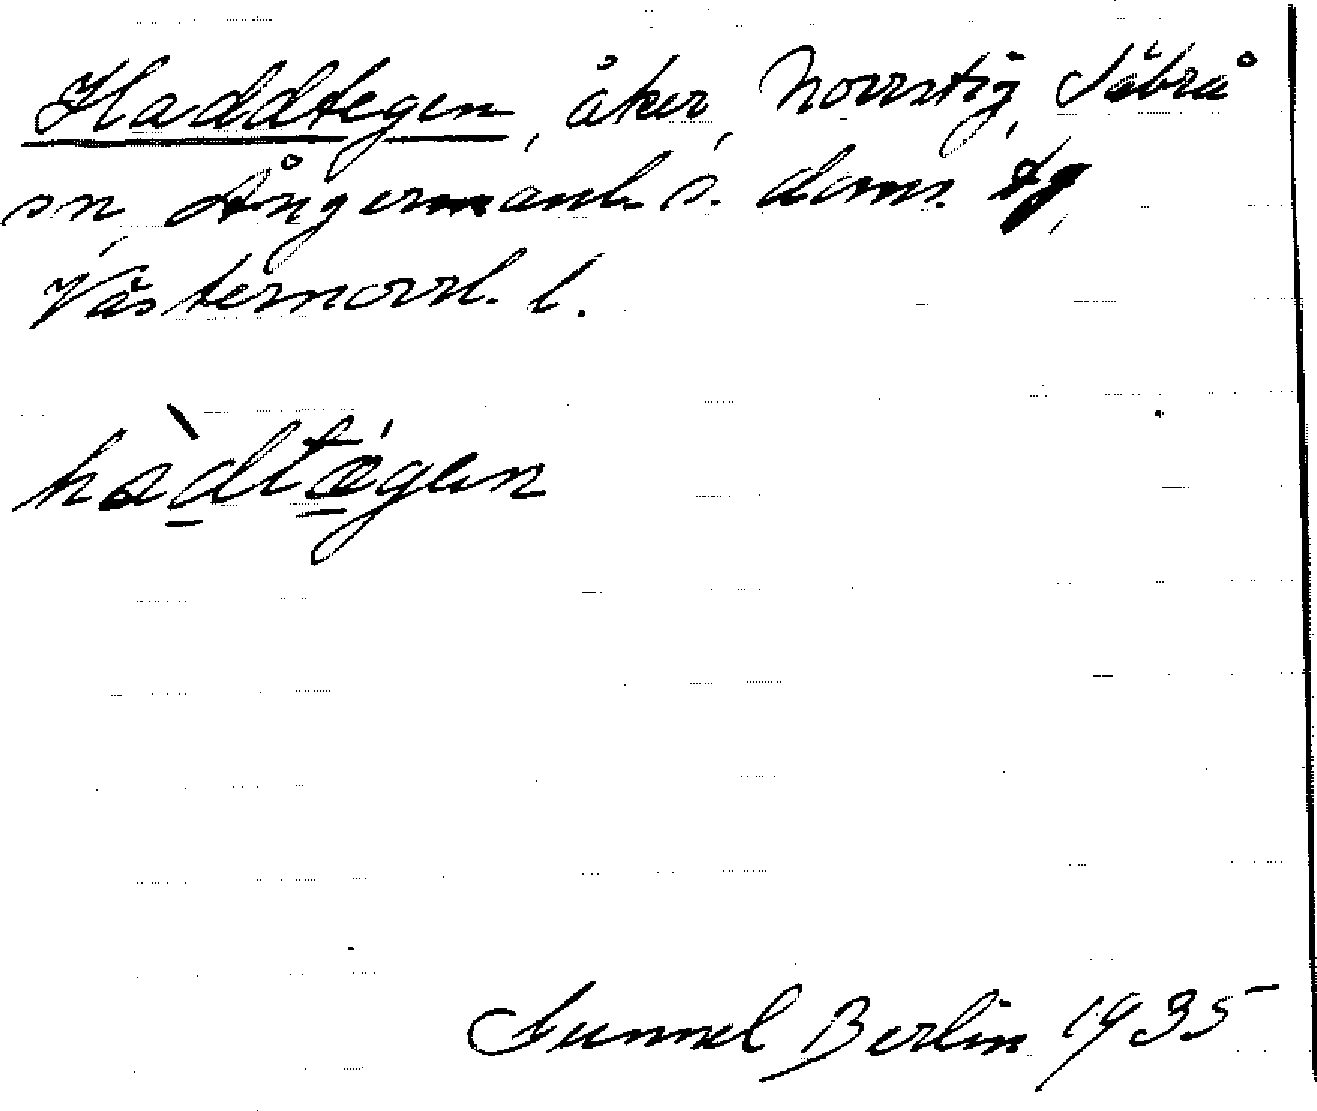 Haddtegen, åker, Norrstig, Säbrå
sn, Ångermanl. s. doms. tg,
Västernorrl. l.
hàdtégen
Gunnel Berlin 1935